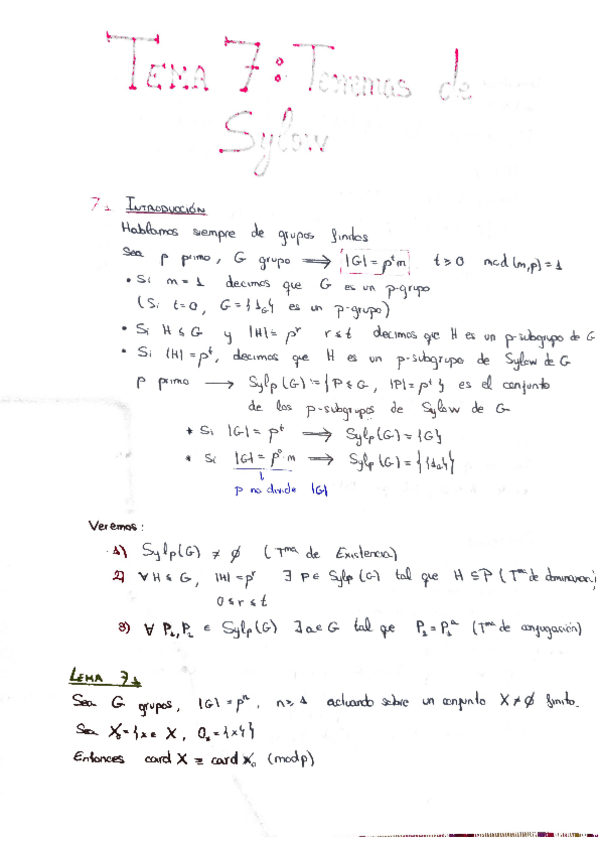 TEMA 7: Teoremas de
Sylow
7.1 INTRODUCCIÓN
Hablamos siempre de grupos finitos
Sea p primo, G grupo ⟹ |G| = pᵗm t ≥ 0 mcd (m,p) = 1
• Si m = 1 decimos que G es un p-grupo
(Si t=0, G = {1_G} es un p-grupo)
• Si H ≤ G y |H| = pʳ r ≤ t decimos que H es un p-subgrupo de G
• Si |H| = pᵗ, decimos que H es un p-subgrupo de Sylow de G
p primo ⟶ Sylₚ(G) := {P ≤ G, |P| = pᵗ} es el conjunto
de los p-subgrupos de Sylow de G
* Si |G| = pᵗ ⟹ Sylₚ(G) = {G}
* Si |G| = p⁰m ⟹ Sylₚ(G) = {{1_G}}
p no divide |G|
Veremos:
1) Sylₚ(G) ≠ ∅ (Tᵐᵃ de Existencia)
2) ∀ H ≤ G, |H| = pʳ ∃ P ∈ Sylₚ(G) tal que H ⊆ P (Tᵐᵃ de dominación)
0 ≤ r ≤ t
3) ∀ P₁, P₂ ∈ Sylₚ(G) ∃ a ∈ G tal que P₂ = P₁ᵃ (Tᵐᵃ de conjugación)
LEMA 7.1
Sea G grupos, |G| = pⁿ, n ≥ 1 actuando sobre un conjunto X ≠ ∅ finito.
Sea X₀ = {x ∈ X, Oₓ = {x}}
Entonces card X ≡ card X₀ (mod p)